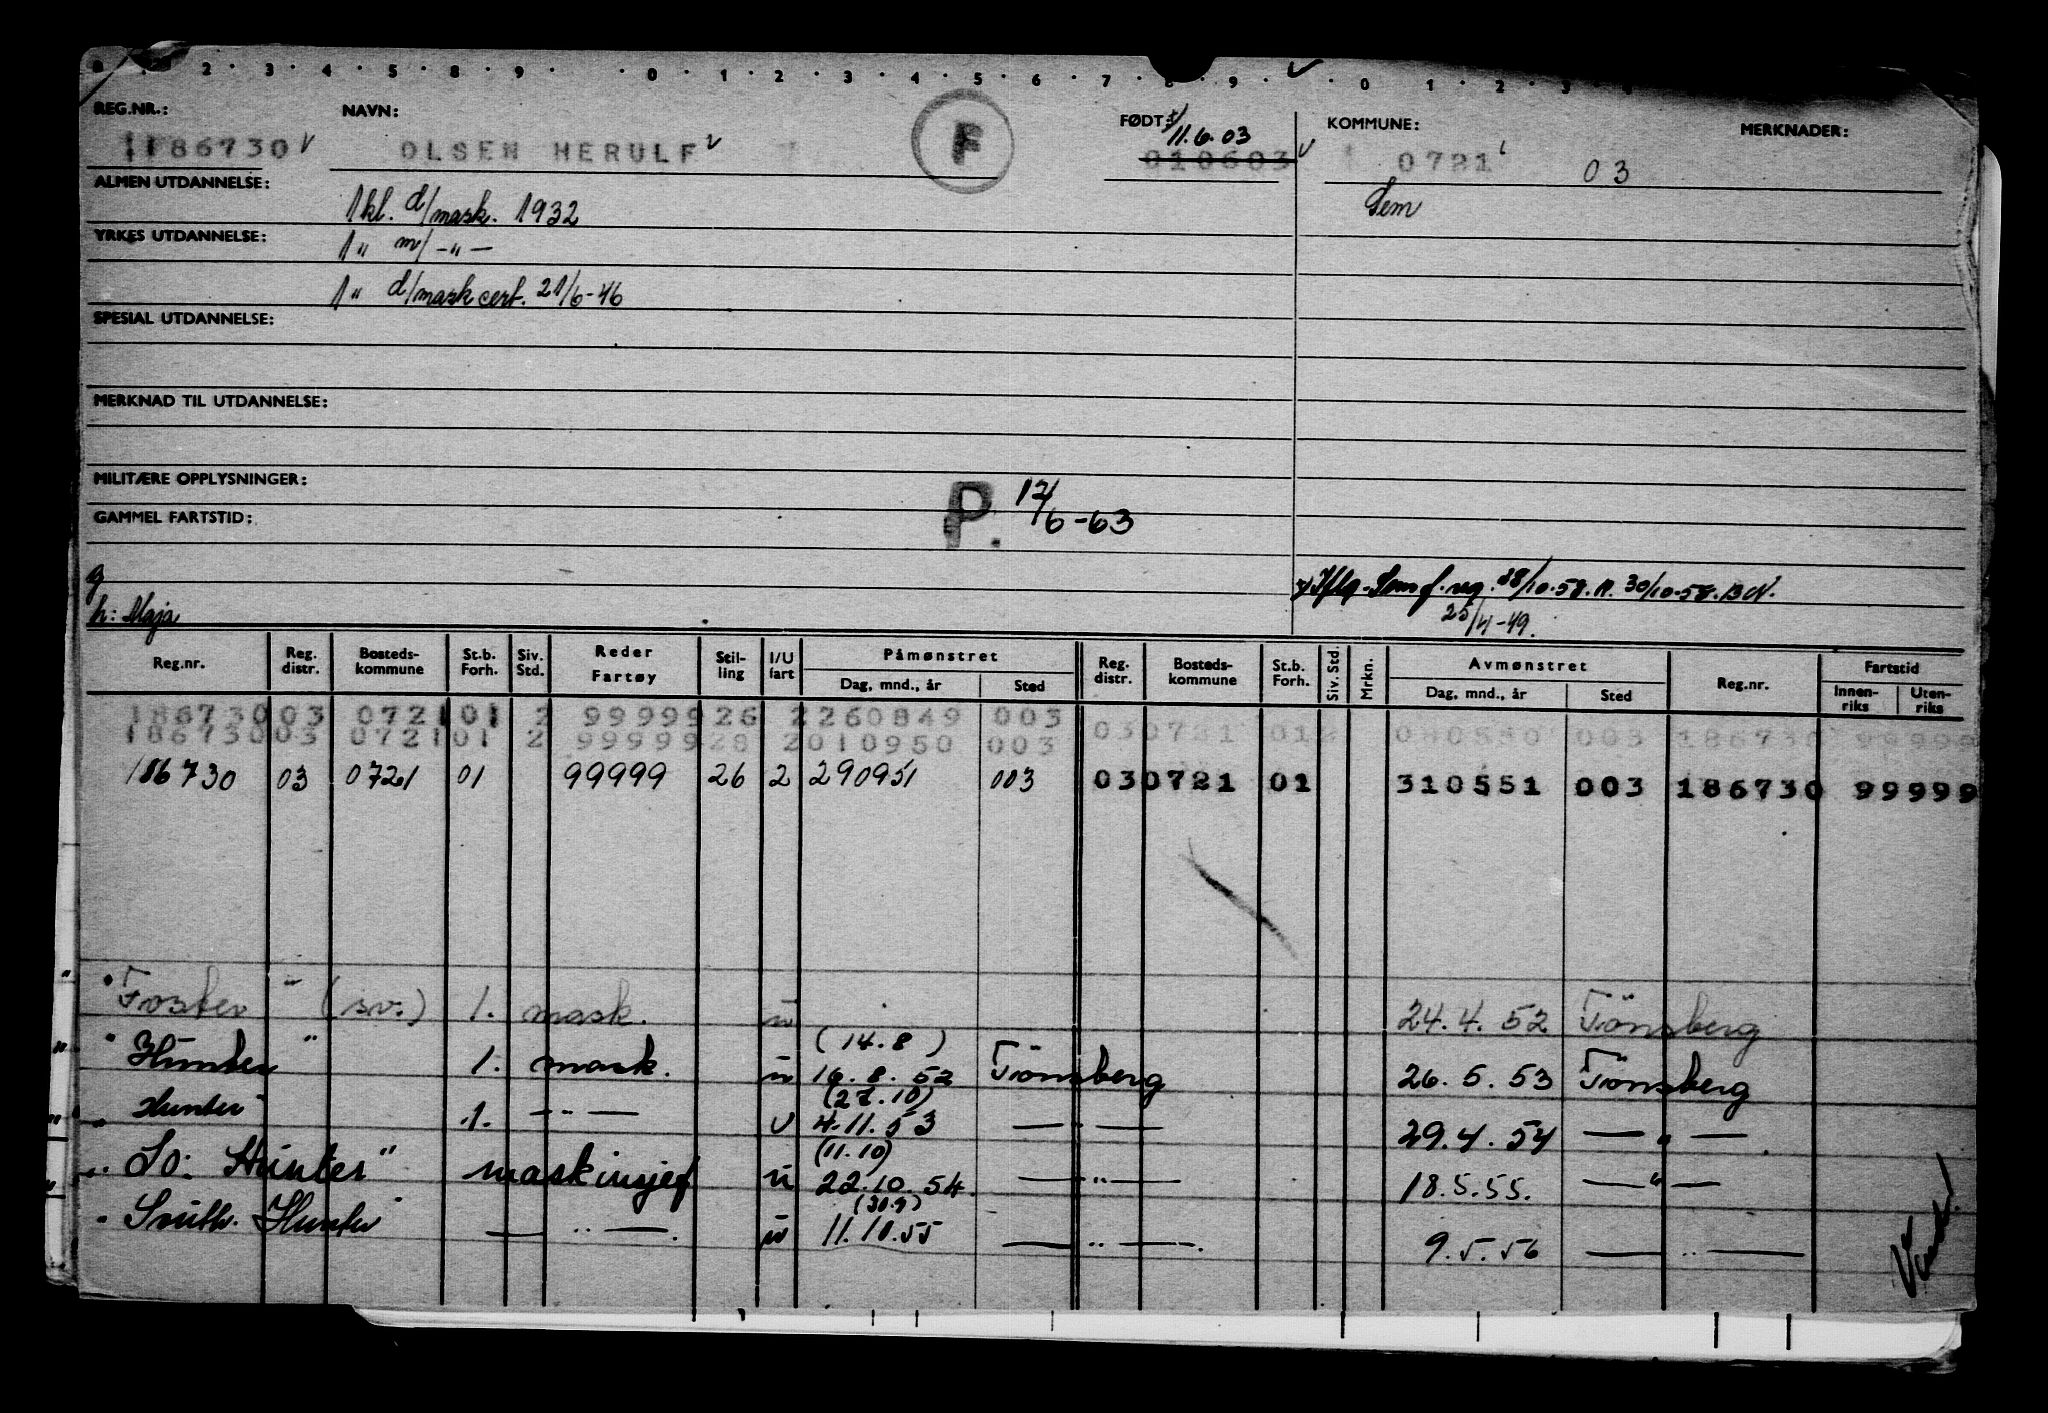 0 . 1 . 2 . 3 . 4 . 5 . 8 . 9 . . 0 . 1 . 2 . 3 . 4 . 5 . 6 . 7 . 8 . 9 . . 0 . 1 . 2 . 3
REG.NR.: NAVN: FØDT: KOMMUNE: MERKNADER:
11.6.03
186730 OLSEN HERULF F 010603 0721 03
ALMEN UTDANNELSE: 1kl. d/mask. 1932 Sem
YRKES UTDANNELSE: 1 " m/ - " -
1 " d/mask cert. 21/6-46
SPESIAL UTDANNELSE:
MERKNAD TIL UTDANNELSE:
MILITÆRE OPPLYSNINGER:
P. 12/6-63
GAMMEL FARTSTID:
g
x) Iflg. Sem f.reg. 28/10-58. 30/10-58. BN.
h: Maja 25/4-49.
Reg.nr. Reg. distr. Bosteds-kommune St.b. Forh. Siv. Std. Reder Fartøy Stil-ling I/U fart Påmønstret Reg. distr. Bosteds-kommune St.b. Forh. Siv. Std. Mrkn. Avmønstret Reg.nr. Fartstid
Dag, mnd., år Sted Dag, mnd., år Sted Innen-riks Uten-riks
186730 03 0721 01 2 99999 26 2 260849 003
186730 03 0721 01 2 99999 28 2 010950 003 03 0721 01 2 080550 003 186730 99999
186730 03 0721 01 99999 26 2 290951 003 03 0721 01 310551 003 186730 99999
" Foster " (sv.) 1. mask. u 24.4.52 Tönsberg
(14.8)
" Hunter " 1. mask. u 16.8.52 Tönsberg 26.5.53 Tönsberg
(27.10)
" Hunter 1. - " - u 4.11.53 - " - 29.4.54 - " -
(11.10)
" So: Hunter " maskinsjef u 22.10.54. - " - 18.5.55. - " -
(30.9)
" South. Hunter - " - u 11.10.55 - " - 9.5.56 - " -
Vend!